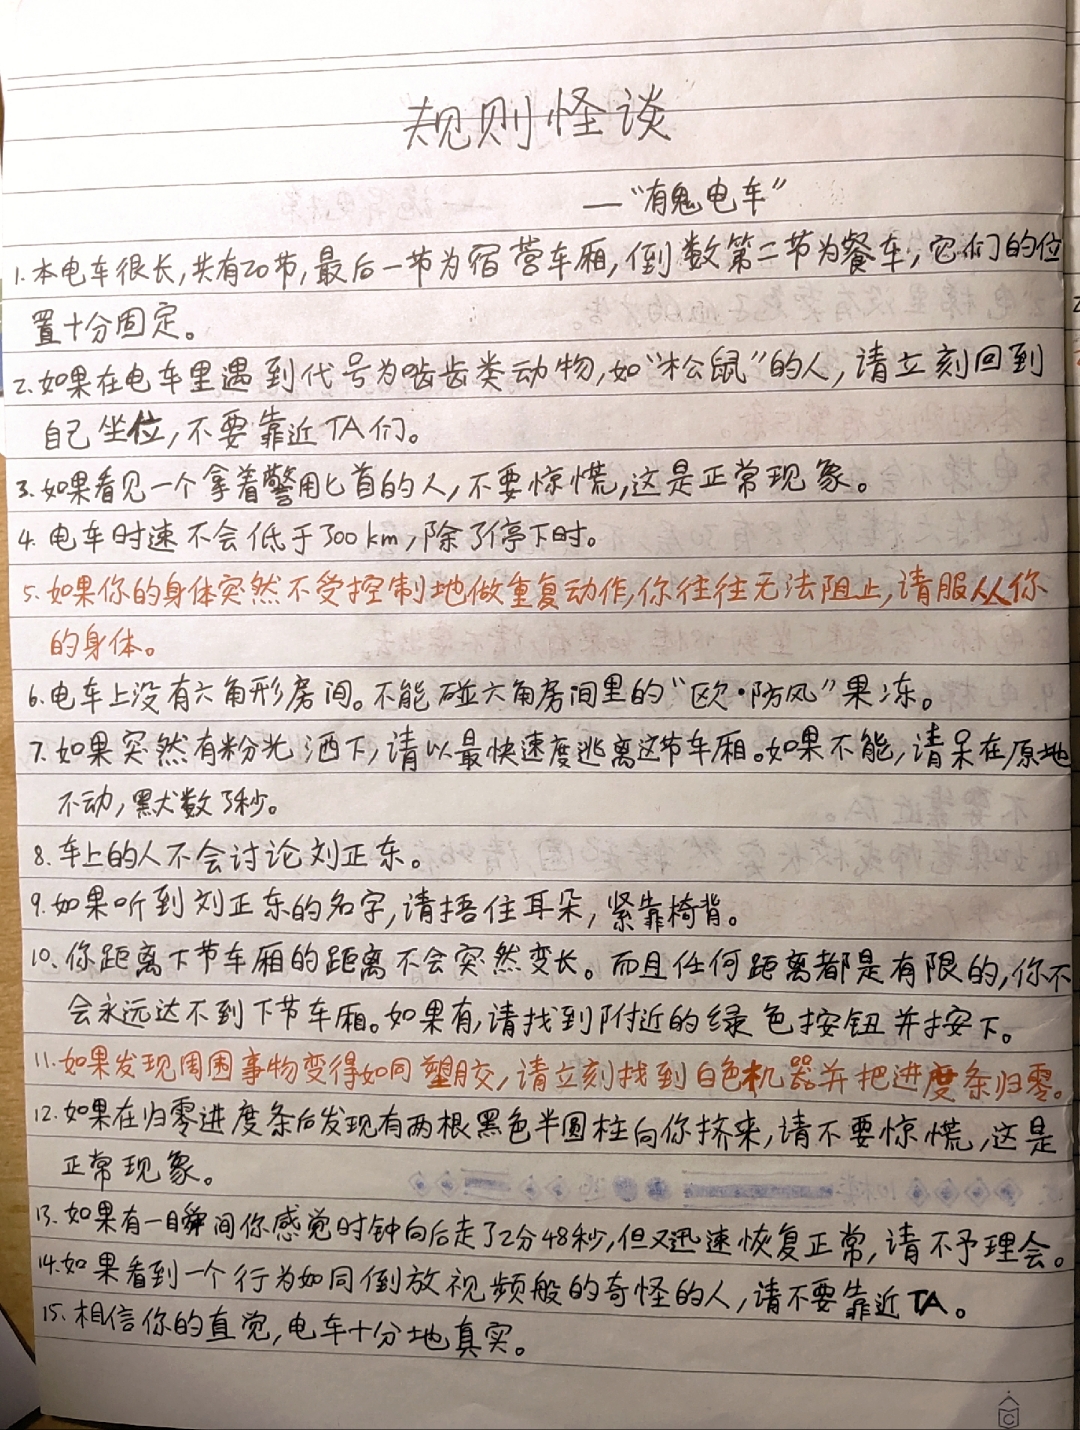 规则怪谈
—“有鬼电车”
1.本电车很长,共有20节,最后一节为宿营车厢,倒数第二节为餐车,它们的位
置十分固定。
2.如果在电车里遇到代号为啮齿类动物,如“松鼠”的人,请立刻回到
自己坐位,不要靠近TA们。
3.如果看见一个拿着警用匕首的人,不要惊慌,这是正常现象。
4.电车时速不会低于300km,除了停下时。
5.如果你的身体突然不受控制地做重复动作,你往往无法阻止,请服从你
的身体。
6.电车上没有六角形房间。不能碰六角房间里的“欧·防风”果冻。
7.如果突然有粉光洒下,请以最快速度逃离这节车厢。如果不能,请呆在原地
不动,默数3秒。
8.车上的人不会讨论刘正东。
9.如果听到刘正东的名字,请捂住耳朵,紧靠椅背。
10.你距离下节车厢的距离不会突然变长。而且任何距离都是有限的,你不
会永远达不到下节车厢。如果有,请找到附近的绿色按钮并按下。
11.如果发现周围事物变得如同塑胶,请立刻找到白色机器并把进度条归零。
12.如果在归零进度条后发现有两根黑色半圆柱向你挤来,请不要惊慌,这是
正常现象。
13.如果有一瞬间你感觉时钟向后走了2分48秒,但又迅速恢复正常,请不予理会。
14.如果看到一个行为如同倒放视频般的奇怪的人,请不要靠近TA。
15.相信你的直觉,电车十分地真实。